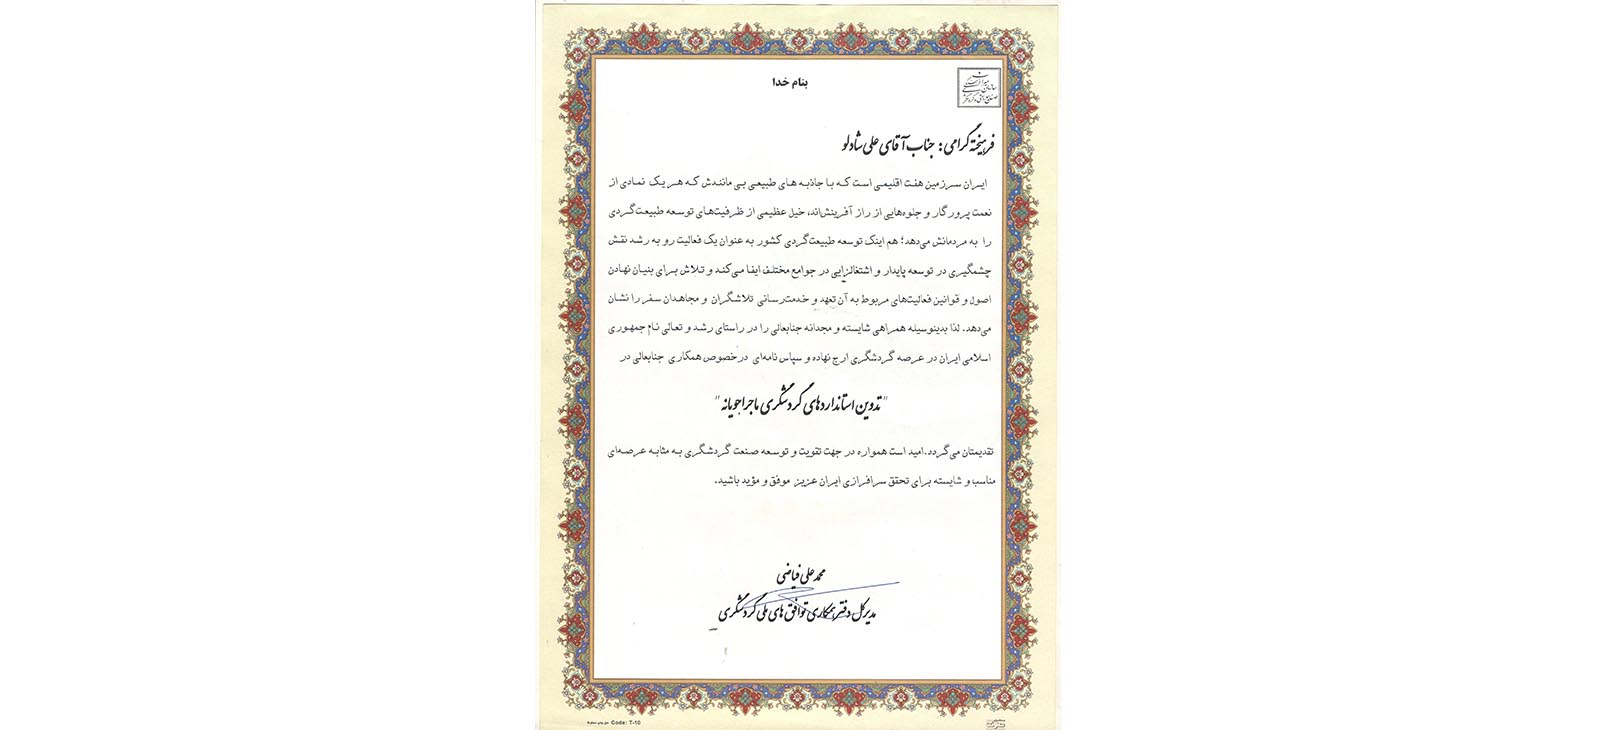 بنام خدا
سازمان میراث فرهنگی
صنایع دستی و گردشگری
فرهیخته گرامی: جناب آقای علی شادلو
ایران سرزمین هفت اقلیمی است که با جاذبه های طبیعی بی مانندش که هر یک نمادی از
نعمت پرورگار و جلوه‌هایی از راز آفرینش‌اند، خیل عظیمی از ظرفیت‌های توسعه طبیعت‌گردی
را به مردمانش می‌دهد؛ هم اینک توسعه طبیعت‌گردی کشور به عنوان یک فعالیت رو به رشد نقش
چشمگیری در توسعه پایدار و اشتغالزایی در جوامع مختلف ایفا می‌کند و تلاش برای بنیان نهادن
اصول و قوانین فعالیت‌های مربوط به آن تعهد و خدمت‌رسانی تلاشگران و مجاهدان سفر را نشان
می‌دهد. لذا بدینوسیله همراهی شایسته و مجدانه جنابعالی را در راستای رشد و تعالی نام جمهوری
اسلامی ایران در عرصه گردشگری ارج نهاده و سپاس نامه‌ای درخصوص همکاری جنابعالی در
"تدوین استانداردهای گردشگری ماجراجویانه"
تقدیمتان می‌گردد.امید است همواره در جهت تقویت و توسعه صنعت گردشگری به مثابه عرصه‌ای
مناسب و شایسته برای تحقق سرافرازی ایران عزیز موفق و مؤید باشید.
محمد علی فیاضی
مدیرکل دفتر همکاری توافق های ملی گردشگری
Code: T-10